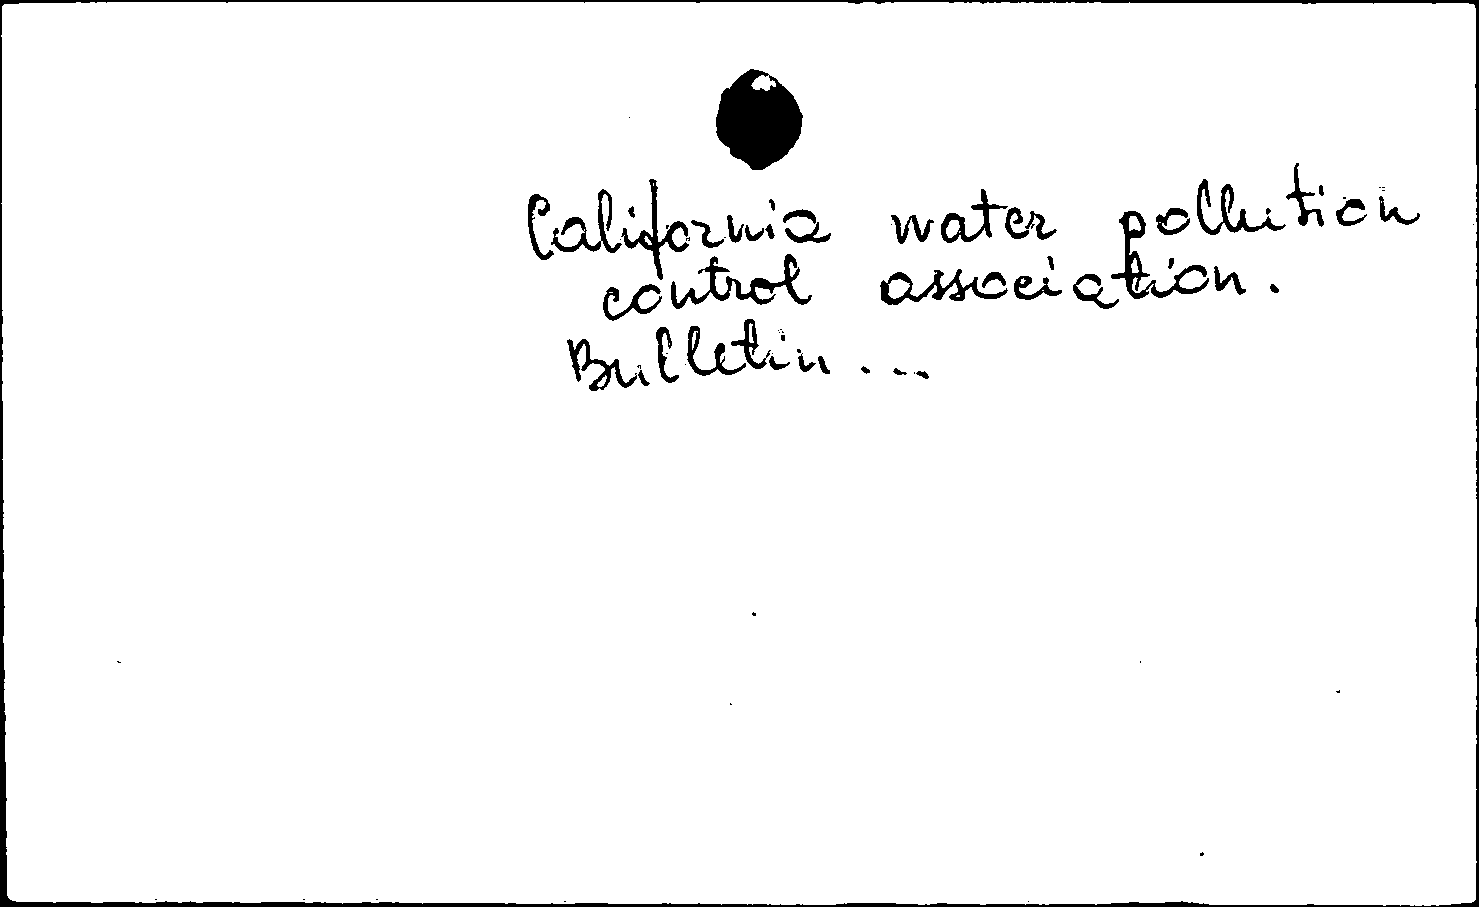 California water pollution
control association.
Bulletin...